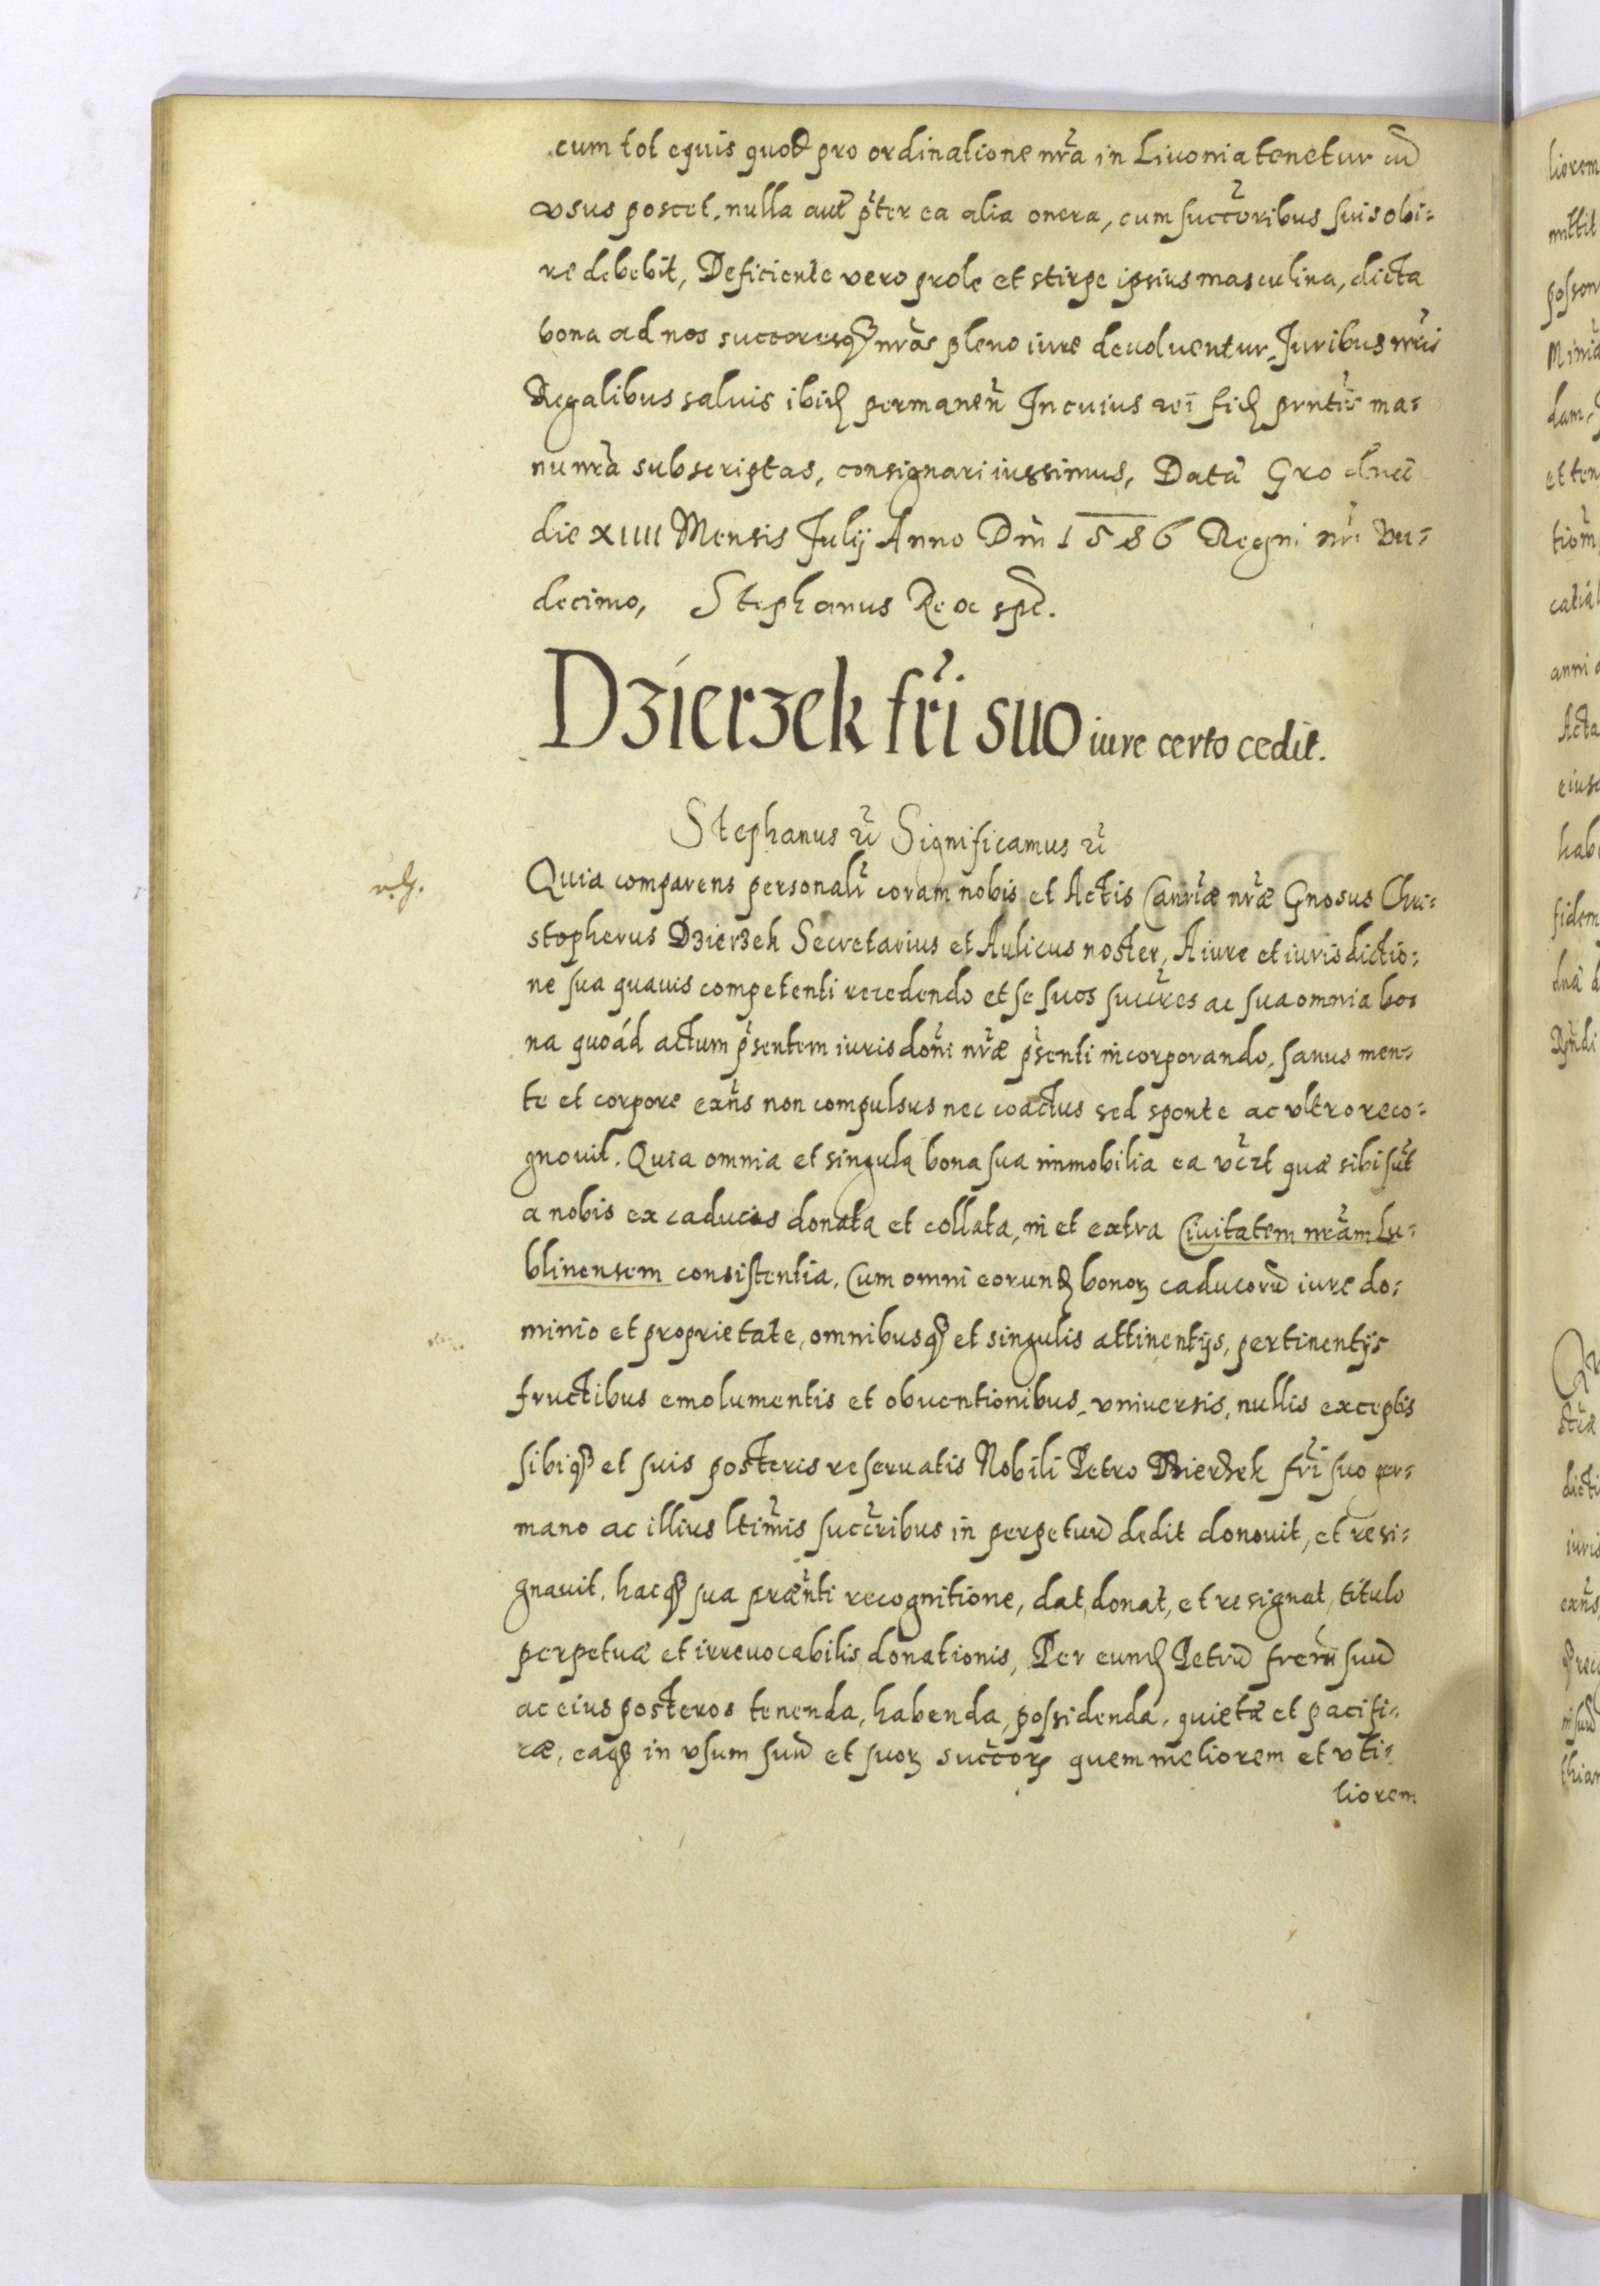 cum tot equis quod pro ordinatione nrã in Liuonia tenetur cũ
vsus poscet, nulla aut̃ p̃ter ea alia onera, cum succc̃oribus suis obi-
re debebit, Deficiente vero prole et stirpe ipsius masculina, dicta
bona ad nos succoresqꝫ nrõs pleno iure deuoluentur, Juribus nrĩs
Regalibus saluis ibidꝫ permaneñ In cuius rei fidꝫ pñtes ma-
nu nrã subscriptas, consignari iussimus, Datũ Grodnæ
die XIIII Mensis Julij Anno Dñi 1586 Regni nrĩ vn-
decimo, Stephanus Rex spt̃.
Dzierzek fr̃i suo iure certo cedit.
Stephanus ꝛc̃ Significamus ꝛc̃
v.g.
Quia comparens personalr̃ coram nobis et Actis Canr̃iæ nr̃æ Gnosus Chri-
stopherus Dzierzek Secretarius et Aulicus noster, A iure et iurisdictio-
ne sua quauis competenti recedendo et se suos succr̃es ac sua omnia bo-
na quoád actum p̃sentem iurisdoñi nr̃æ p̃senti incorporando, sanus men-
te et corpore exñs non compulsus nec coactus sed sponte ac vltro reco-
gnouit. Quia omnia et singula bona sua immobilia ea vꝫt quæ sibi sũt
a nobis ex caducis donata et collata, in et extra Ciuitatem nrãm Lu-
blinensem consistentia, Cum omni eorundꝫ bonoꝝ caducorũ iure do-
minio et proprietate, omnibusqꝫ et singulis attinentijs, pertinentijs
fructibus emolumentis et obuentionibus vniuersis, nullis exceptis
sibiqꝫ et suis posteris reseruatis Nobili Petro Dzierzek fr̃i suo ger-
mano ac illius ltimĩs succr̃ibus in perpetuũ dedit donouit, et resi-
gnauit, hacqꝫ sua præñti recognitione, dat, donat, et resignat, titulo
perpetuæ et irreuocabilis donationis, Per eundꝫ Petrũ frem̃ suũ
ac eius posteros tenenda, habenda, possidenda, quietæ et pacifi-
cæ, eaqꝫ in vsum suũ et suoꝝ succc̃oꝝ quem meliorem et vti-
liorem